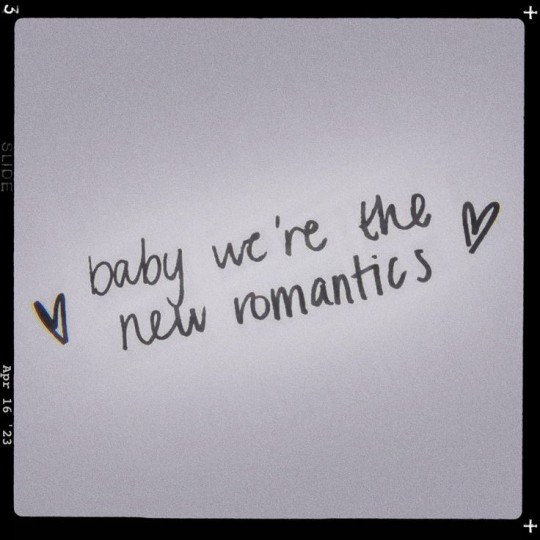 3
SLIDE
Apr 16 '23
baby we're the
new romantics